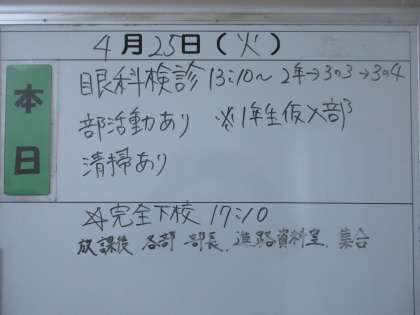 4月25日(火)
本日
眼科検診 13:10〜 2年→3の3→3の4
部活動あり ※1年生仮入部
清掃あり
☆完全下校 17:10
放課後 各部 部長、進路資料室、集合